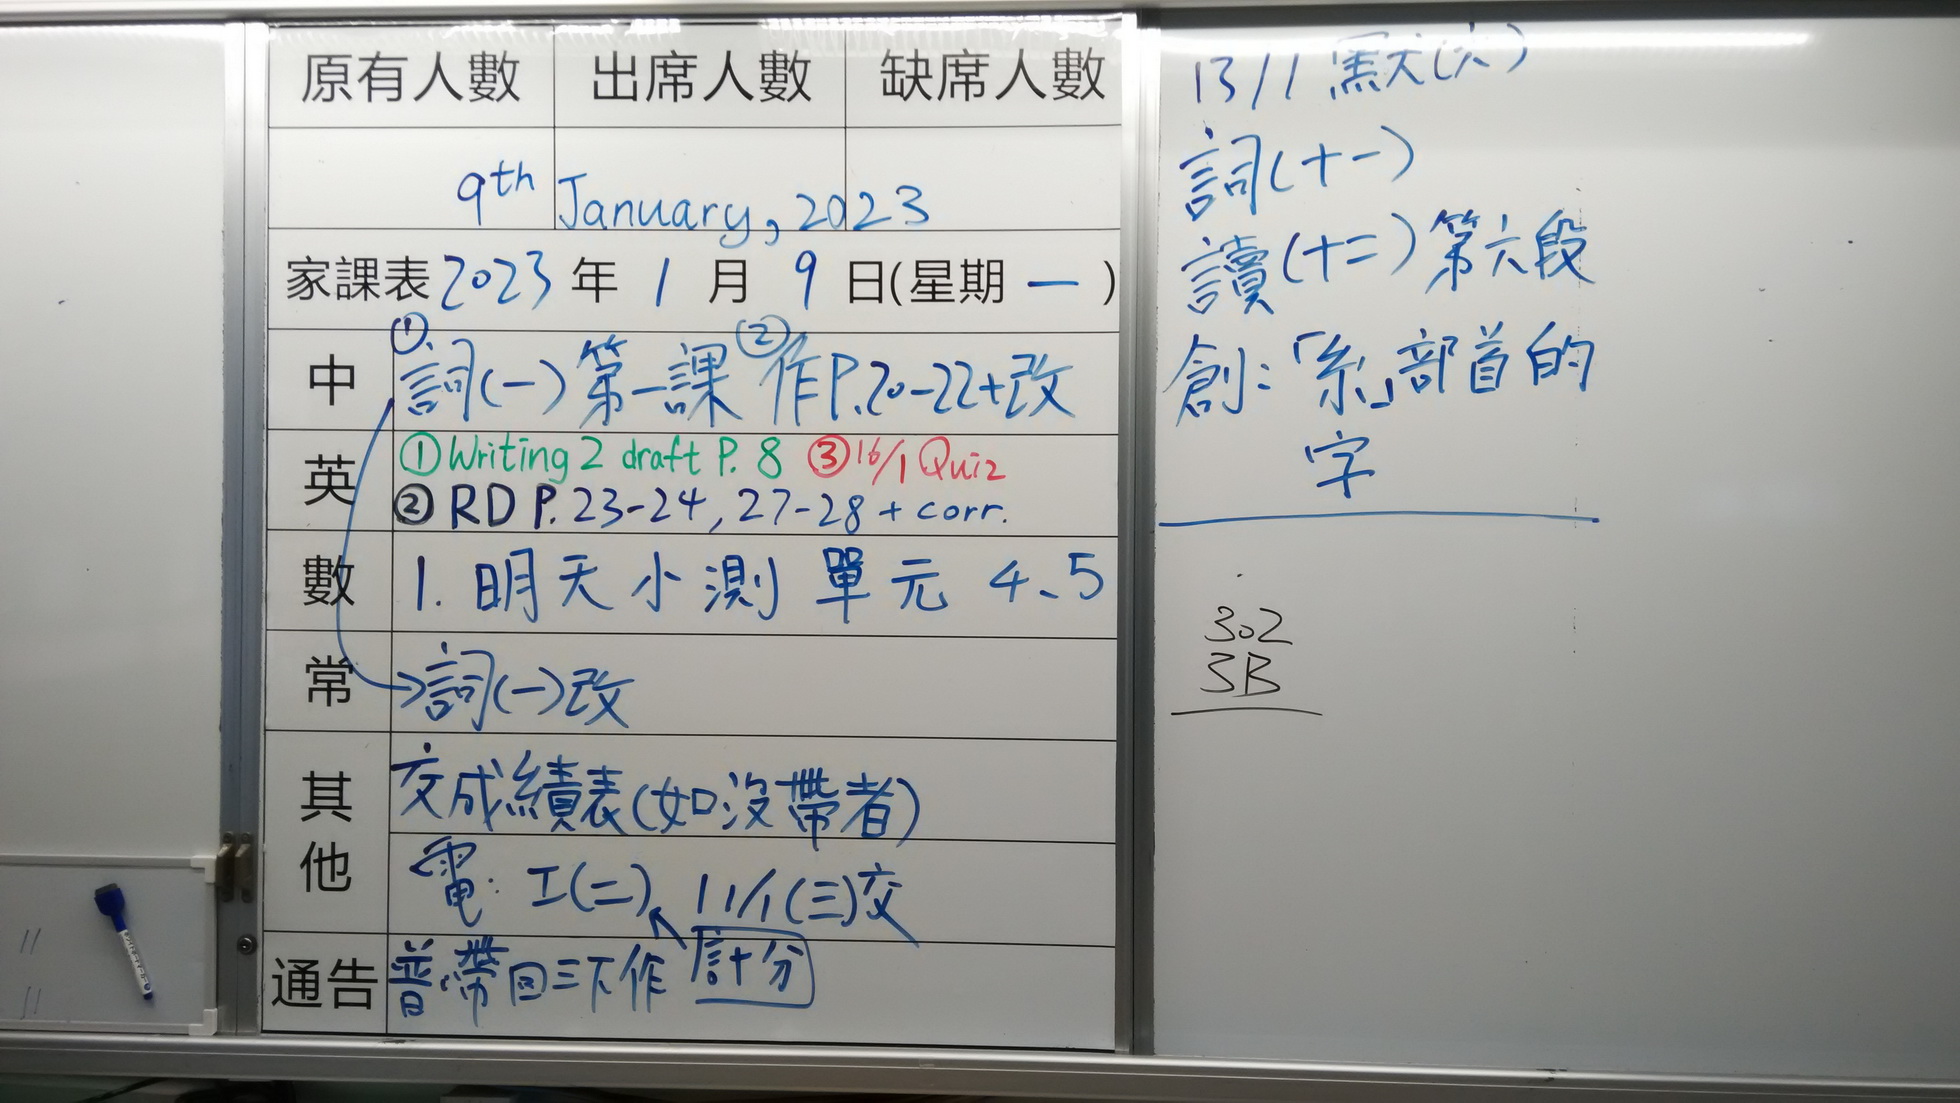 原有人數 出席人數 缺席人數
9th January, 2023
家課表 2023 年 1 月 9 日(星期 一 )
中 ①詞(一)第一課 ②作P.20-22+改
英 ①Writing 2 draft P. 8 ③16/1 Quiz
②RD P. 23-24, 27-28 + corr.
數 1. 明天小測 單元 4、5
常 →詞(一)改
其他 交成績表(如沒帶者)
電: 工(二) 11/1(三)交
通告 普:帶回三下作 計分
13/1 默(六)
詞(十一)
讀(十二)第六段
創:「糸」部首的
字
302
3B